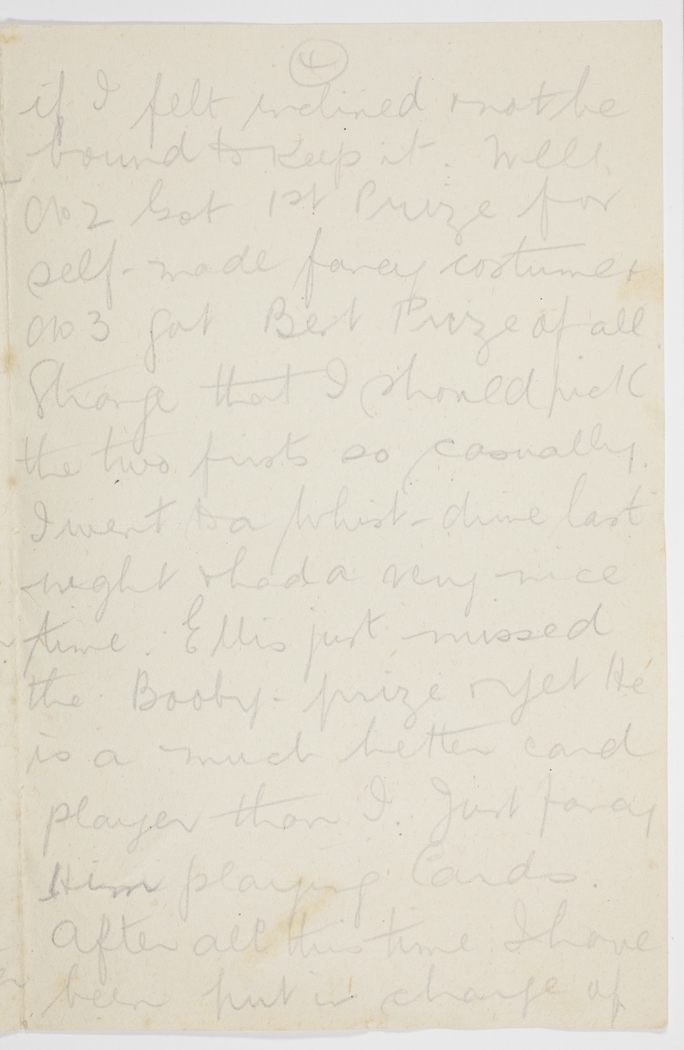 4
if I felt inclined & not be
bound to Keep it. Well.
No 2 Got 1st Prize for
self-made fancy costume &
No 3 got Best Prize of all
Strange that I should pick
the two firsts so casually.
I went to a Whist-drive last
night & had a very nice
time. Ellis just missed
the Booby-prize & yet He
is a much better card
player than I. Just fancy
Him playing Cards.
After all this time I have
been put in charge of